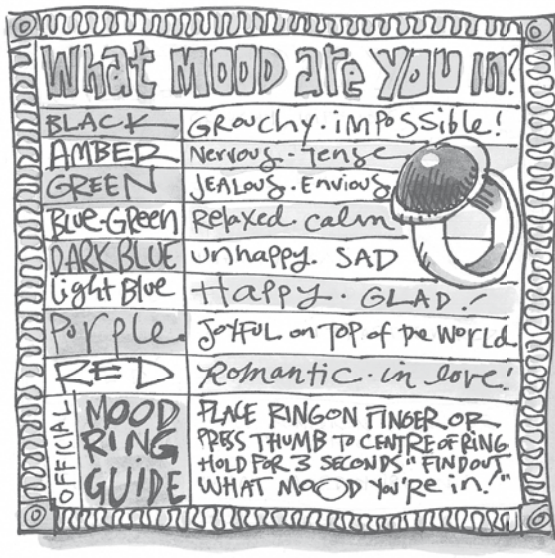 What MOOD are You in?
BLACK GROuchy. imPoSSible!
AMBER Nervous - Tense
GREEN JEALOUS. ENvious
Blue-GReen Relaxed. calm
DARK BLUE unhappy. SAD
Light Blue Happy. GLAD!
Purple JoYFUL on ToP of the World
RED Romantic. in love!
OFFICIAL MOOD RING GUIDE
PLACE RING ON FINGER OR
PRESS THUMB TO CENTRE OF RING
HOLD FOR 3 SECONDS "FIND OUT
WHAT MOOD You'Re in!"